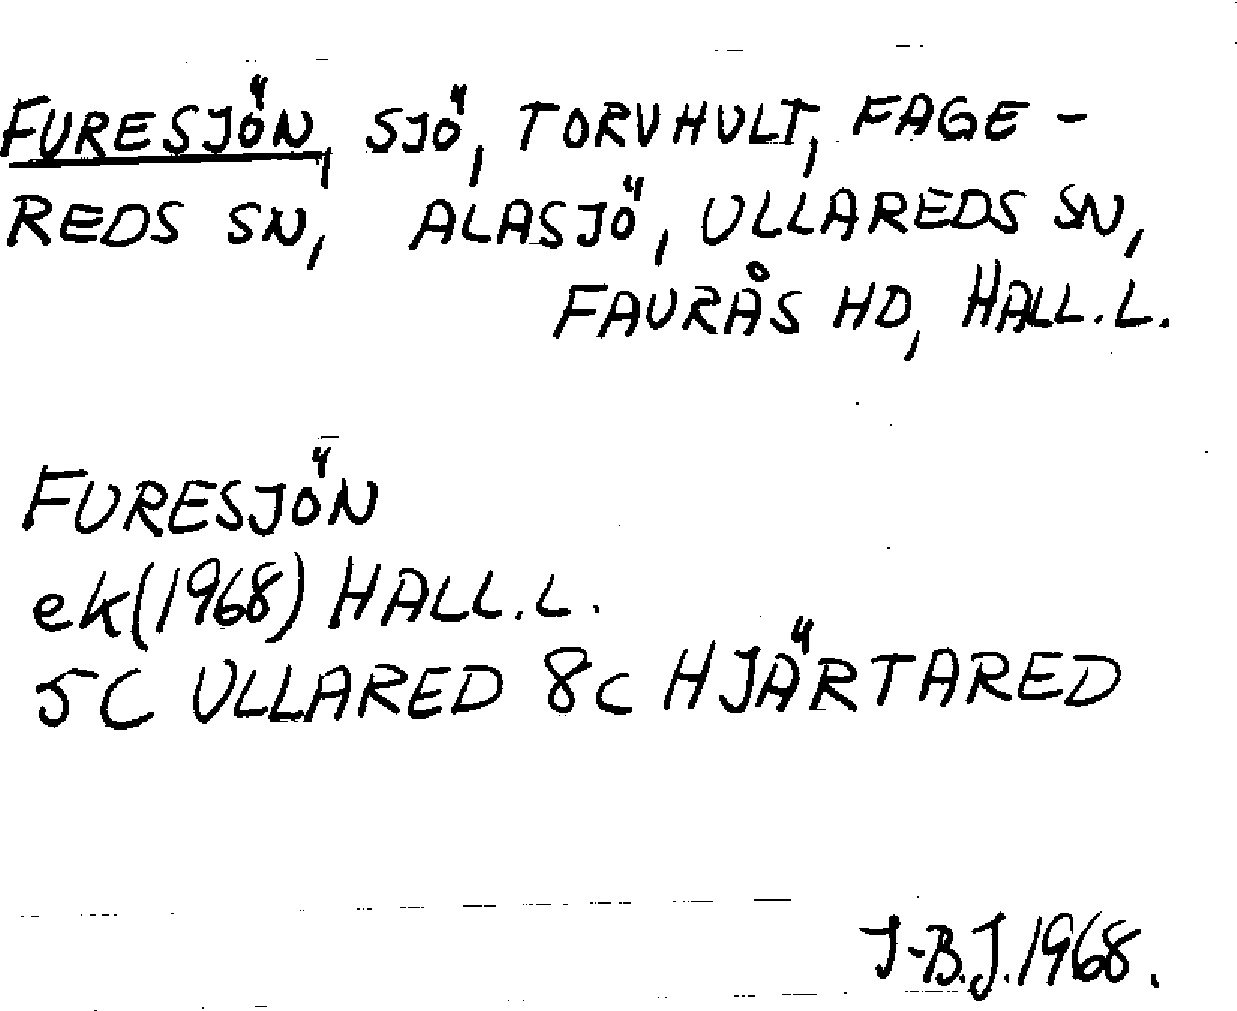 FURESJÖN, SJÖ, TORVHULT, FAGE-
REDS SN, ALASJÖ, ULLAREDS SN,
FAURÅS HD, HALL.L.
FURESJÖN
ek(1968) HALL.L.
5C ULLARED 8C HJÄRTARED
J-B.J. 1968.